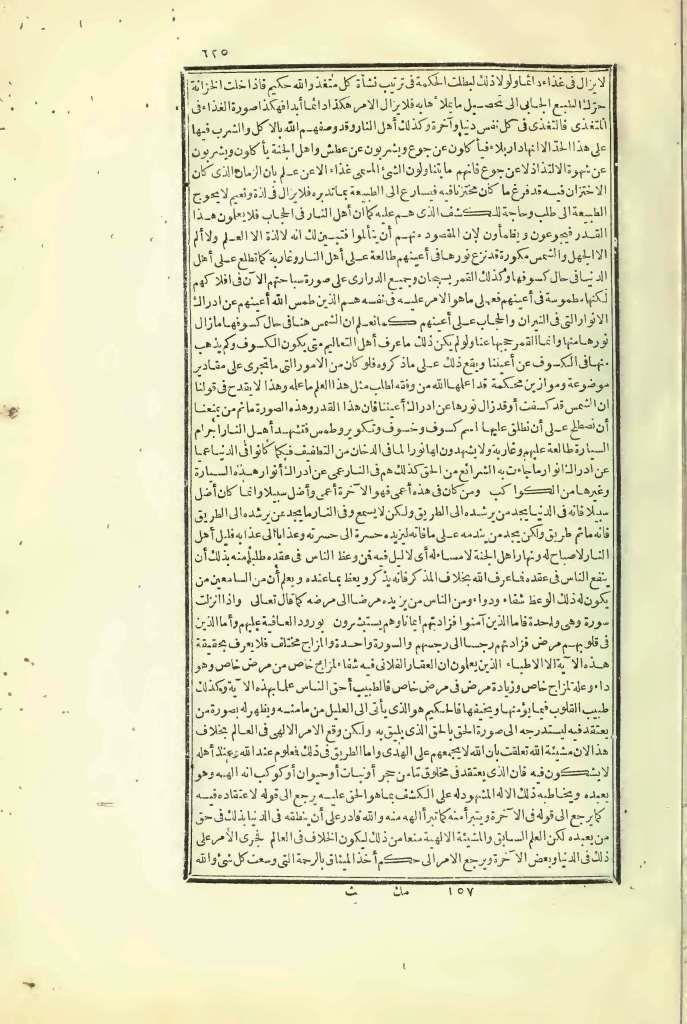 ٦٢٥
لا يزال فى غذاء دائما ولولا ذلك لبطلت الحكمة فى ترتيب نشأة كل متغذ والله حكيم فاذا خلت الخزانة
حرّك الطبع الجابى الى تحصيل ما يملأها به فلا يزال الامر هكذا دائما أبدا فهكذا صورة الغذاء فى
المتغذى فالتغذى فى كل نفس دنيا وآخرة وكذلك أهل النار وقد وصفهم الله بالاكل والشرب فيها
على هذا الحد الا انها دار بلاء فيأكلون عن جوع ويشربون عن عطش وأهل الجنة يأكلون ويشربون
عن شهوة الالتذاذ لا عن جوع فانهم ما يتناولون الشئ المسمى غذاء الا عن علم بان الزمان الذى كان
الاختزان فيه قد فرغ ما كان مختزنا فيه فيسارع الى الطبيعة بما تدبره فلا يزال فى لذة ونعيم لا يحوج
الطبيعة الى طلب وحاجة للكشف الذى هم عليه كما ان أهل النار فى الحجاب فلا يعلمون هذا
القدر فيجوعون ويظمأون لان المقصود منهم أن يتألموا فتبين لك انه لا لذة الا العلم ولا ألم
الا الجهل والشمس مكورة قد نزع نورها فى أعينهم طالعة على أهل النار وغاربة كما تطلع على أهل
الدنيا فى حال كسوفها وكذلك القمر يسبحان وجميع الدرارى على صورة سباحتهم الآن فى افلاكهم
لكنها مطموسة فى أعينهم فعلى ما هو الامر عليه فى نفسه هم الذين طمس الله أعينهم عن ادراك
الانوار التى فى النيران والحجاب على أعينهم كما نعلم ان الشمس هنا فى حال كسوفها ما زال
نورها منها وانما القمر حجبها عنا ولو لم يكن ذلك ما عرف أهل التعاليم متى يكون الكسوف وكم يذهب
منها فى الكسوف عن أعيننا ويقع ذلك على ما ذكروه فلو كان من الامور التى ما تجرى على مقادير
موضوعة وموازين محكمة قد أعلمها الله من وفقه لطلب مثل هذا العلم ما علمه وهذا لا يقدح فى قولنا
ان الشمس قد كسفت أو قد زال نورها عن ادراك أعيننا فان هذا القدر وهذه الصورة ما ثم من يمنعنا
أن نصطلح على أن نطلق عليها اسم كسوف وخسوف وتكوير وطمس فتشهد أهل النار أجرام
السيارة طالعة عليهم وغاربة ولا يشهدون لها نورا لما فى الدخان من التطفيف فكما كانوا فى الدنيا عميا
عن ادراك أنوار ما جاءت به الشرائع من الحق كذلك هم فى النار عمى عن ادراك أنوار هذه السيارة
وغيرها من الكواكب ومن كان فى هذه أعمى فهو فى الآخرة أعمى وأضل سبيلا وانما كان أضل
سبيلا فانه فى الدنيا يجد من يرشده الى الطريق ولكن لا يسمع وفى النار ما يجد من يرشده الى الطريق
فانه ما ثم طريق ولكن يجد من يندمه على ما فاته ليزيده حسرة الى حسرته وعذابا الى عذابه فليل أهل
النار لا صباح له ونهار أهل الجنة لا مساء له أى لا ليل فيه فمن وعظ الناس فى عقده طلبا منه بذلك أن
ينفع الناس فى عقده فما عرف الله بخلاف المذكر فانه يذكر ويعظ بما عنده ويعلم أن من السامعين من
يكون له ذلك الوعظ شفاء ودواء ومن الناس من يزيده مرضا الى مرضه كما قال تعالى واذا أنزلت
سورة وهى واحدة فأما الذين آمنوا فزادتهم ايمانا وهم يستبشرون بورود العافية عليهم وأما الذين
فى قلوبهم مرض فزادتهم رجسا الى رجسهم والسورة واحدة والمزاج مختلف فلا يعرف بحقيقة
هذه الآية الا الاطباء الذين يعلمون ان العقار الفلانى فيه شفاء لمزاج خاص من مرض خاص وهو
داء وعلة لمزاج خاص وزيادة مرض فى مرض خاص فالطبيب أحق الناس علما بهذه الآية وكذلك
طبيب القلوب فيما يؤمنها ويخيفها فالحكيم هو الذى يأتى الى العليل من مأمنه ويظهر له بصورة من
يعتقد فيه ليستدرجه الى صورة الحق بالحق الذى يليق به ولكن وقع الامر الالهى فى العالم بخلاف
هذا لان مشيئة الله تعلقت بان الله لا يجمعهم على الهدى واما الطريق فى ذلك فمعلوم عند الله وعند أهله
لا يشكون فيه فان الذى يعتقد فى مخلوق ما من حجر أو نبات أو حيوان أو كوكب انه الهه وهو
يعبده ويخاطبه ذلك الاله المشهود له على الكشف بما هو الحق عليه يرجع الى قوله لاعتقاده فيه
كما يرجع الى قوله فى الآخرة ويتبرأ منه كما تبرأ الهه منه والله قادر على أن ينطقه فى الدنيا بذلك فى حق
من يعبده لكن العلم السابق والمشيئة الالهية منعا من ذلك ليكون الخلاف فى العالم فجرى الأمر على
ذلك فى الدنيا وبعض الآخرة ويرجع الامر الى حكم أخذ الميثاق بالرحمة التى وسعت كل شئ والله
١٥٧ مك ث